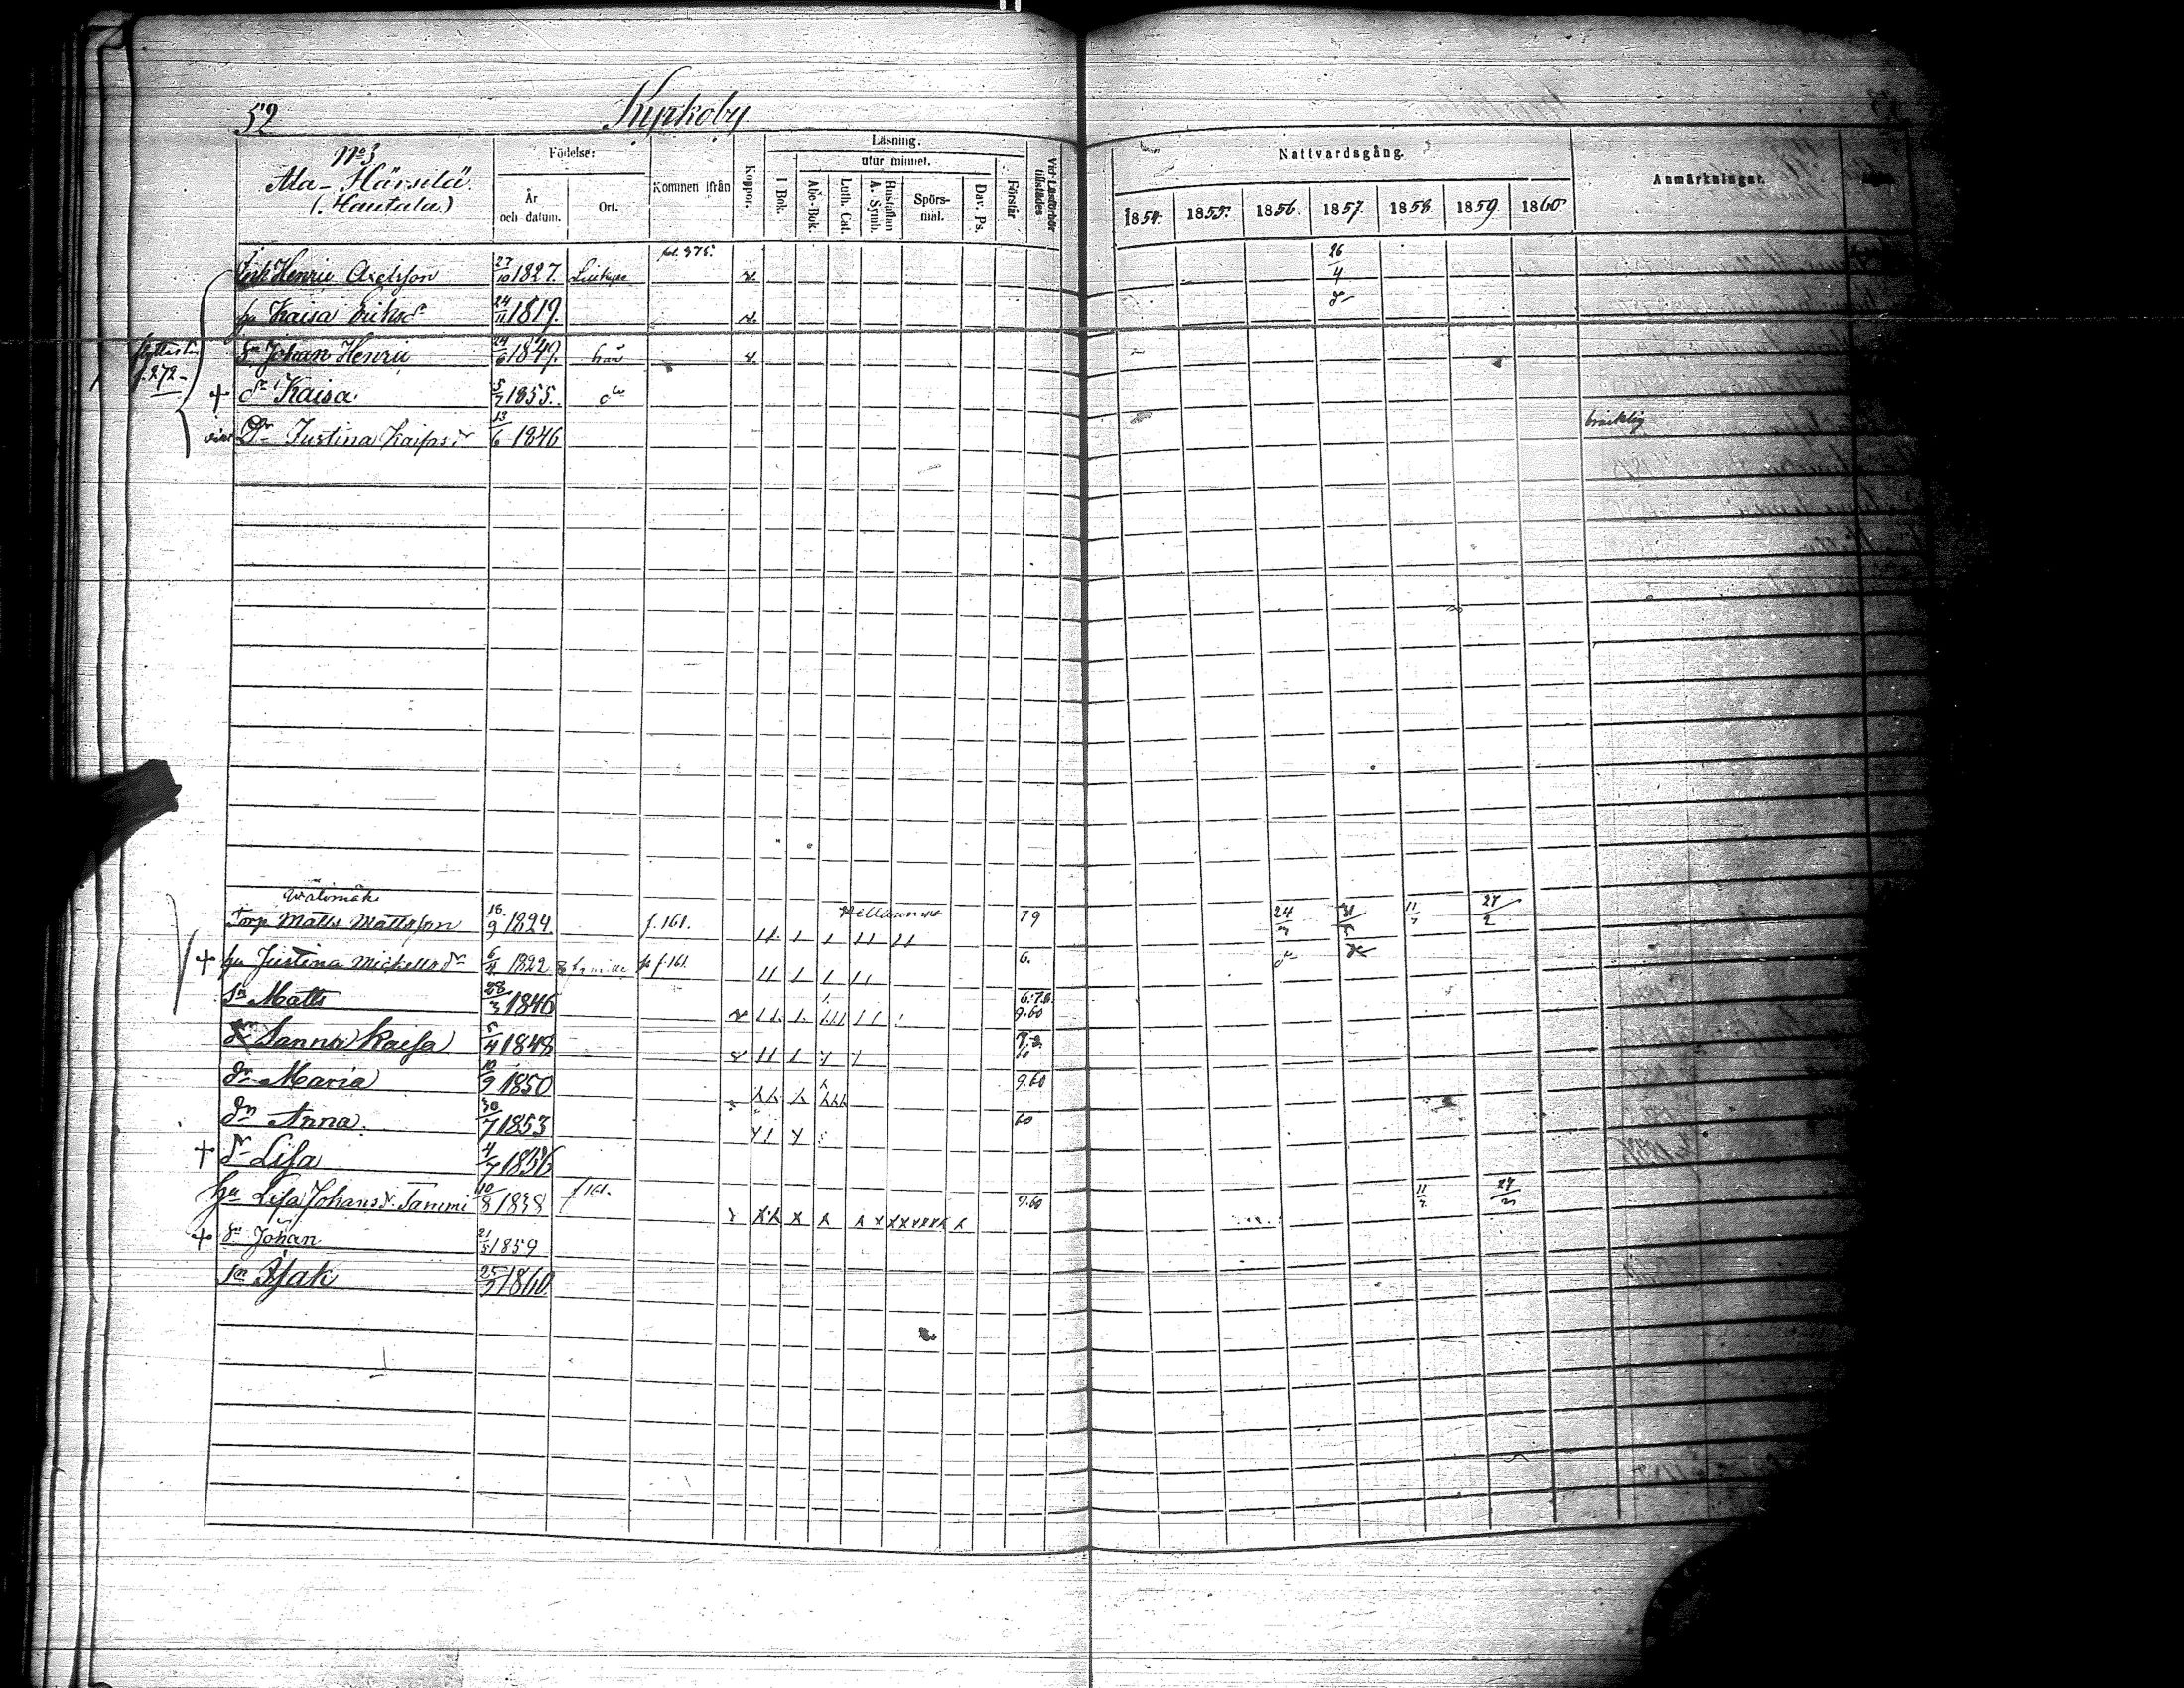 52 Kyrkoby
No 3
Ala-Härsilä
(Hautala)
Födelse:
År och datum.
Ort.
Kommen ifrån
Koppor.
Läsning.
I Bok.
utur minnet.
Abc-Bok.
Luth. Cat.
Hustaflan A. Symb.
Spörs-mål.
Dav. Ps.
Förstår
Vid Läseförhör tillstädes
Nattvardsgång.
1854. 1855. 1856. 1857. 1858. 1859. 1860.
Anmärkningar.
Henric Axelsson 27/10 1827. fol. 375. 26/4
hu Kaisa Eriksdr 24/11 1819.
Sn Johan Henric 24/6 1849. här
f. 272
+ dr Kaisa 5/7 1855. do
Dr Justina Kaisasdr 13/6 1846 bräcklig
Välimäki
Torp. Matts Mattsson 16/9 1824 f. 161. 79 24/3 11/7 27/2
+ hu Justina Michelsdr 6/4 1822 f. 161. 6.
Sn Matts 28/3 1846 6.7.8. 9.60
dr Sanna Kaisa 5/4 1848 60
dr Maria 10/9 1850 9.60
dr Anna 30/7 1853 60
+ dr Lisa 4/7 1856
hu Lisa Johansdr Tammi 10/8 1838 f 161. 9.60 11/7 27/2
+ Sn Johan 21/5 1859
Sn Isak 25/7 1860.